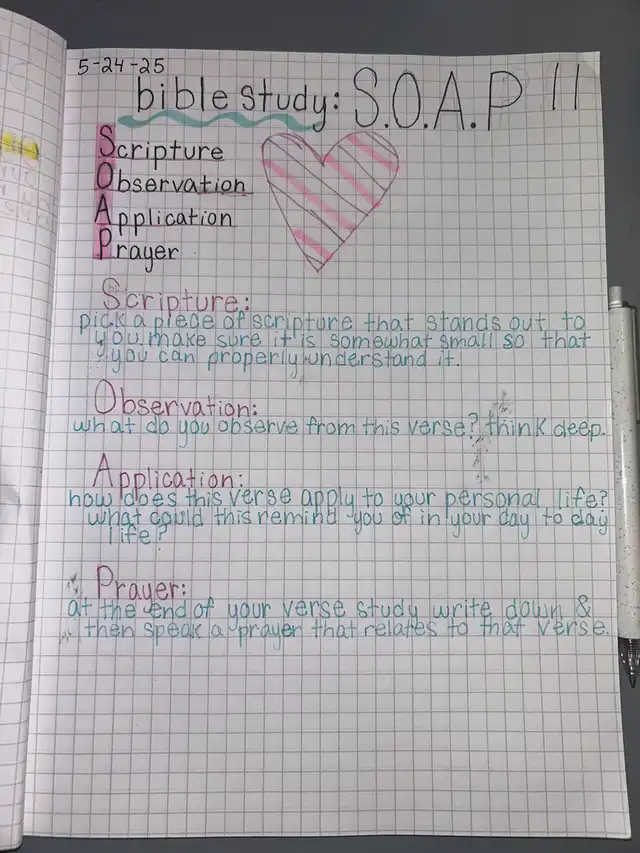 5-24-25
bible study: S.O.A.P 11
Scripture
Observation
Application
Prayer
Scripture:
pick a piece of scripture that stands out to
you. make sure it is somewhat small so that
you can properly understand it.
Observation:
what do you observe from this verse? think deep.
Application:
how does this verse apply to your personal life?
what could this remind you of in your day to day
life?
Prayer:
at the end of your verse study write down &
then speak a prayer that relates to that verse.